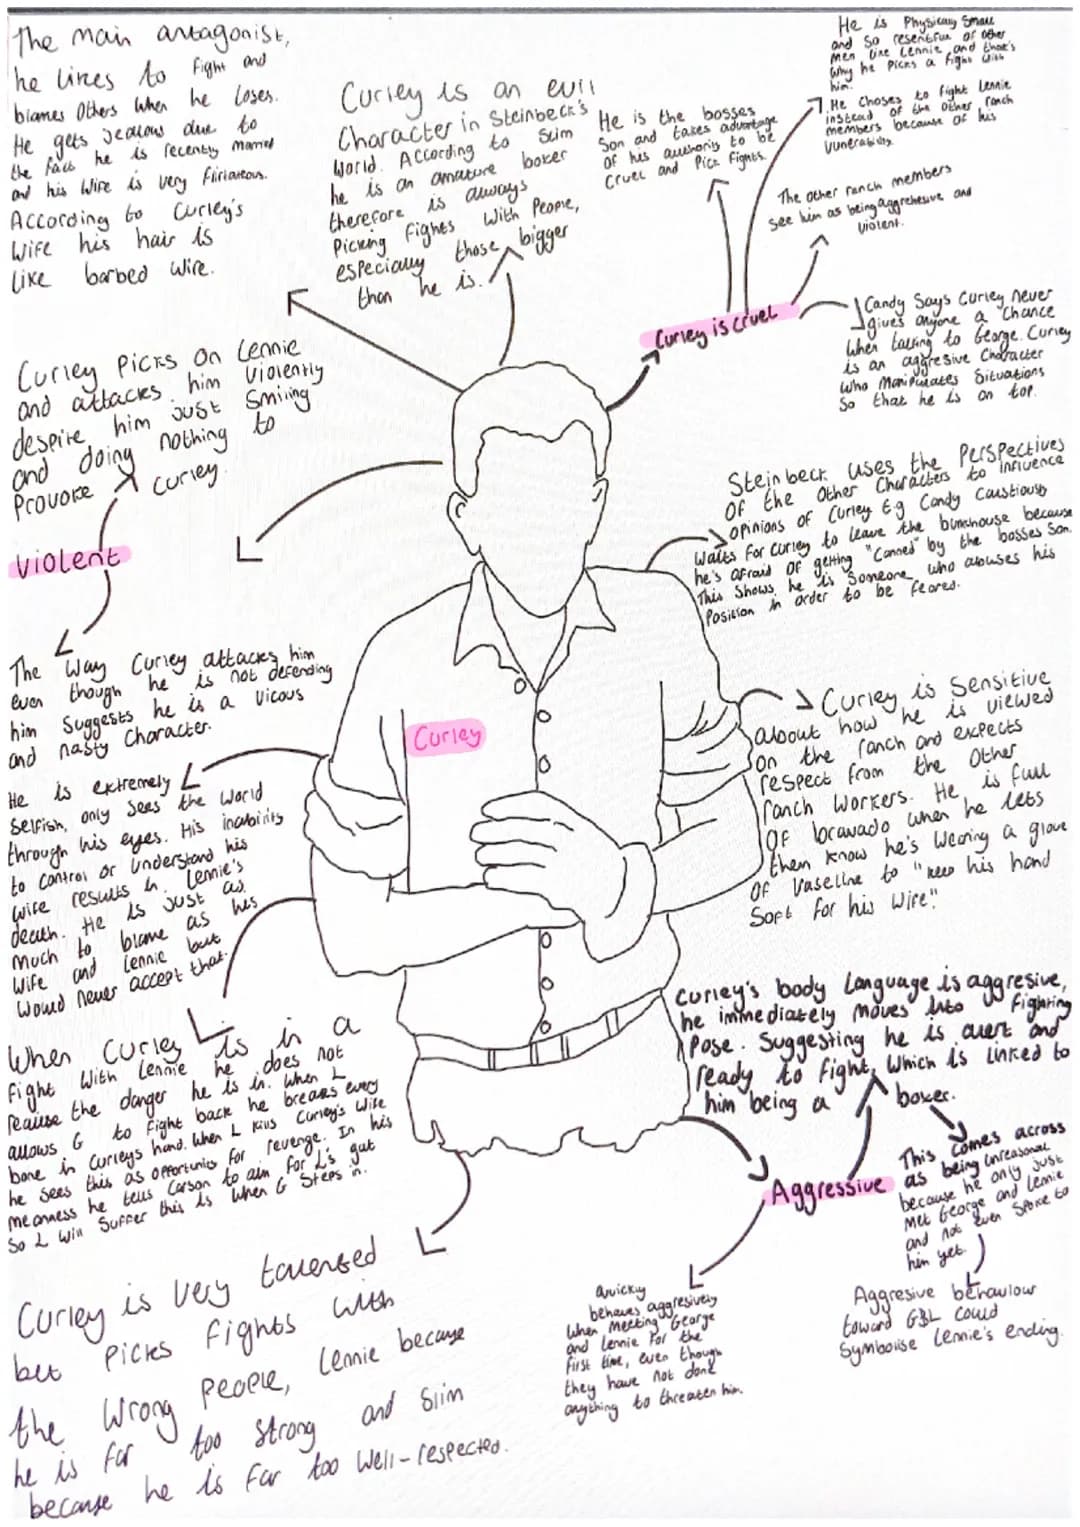 The main antagonist,
he likes to fight and
blames others when he loses.
He gets Jealous due to
the fact he is recently married
and his wife is very flirtateous.
According to Curley's
Wife his hair is
like barbed wire.
Curley is an evil
Character in Steinbeck's
World. According to Slim
he is an amature boxer
therefore is always
Picking fights With People,
especially those bigger
than he is.
He is the bosses
Son and takes advantage
of his authority to be
Cruel and Pick Fights.
He is Physically Small
and so resentful of other
men like Lennie and that's
why he Picks a fight with
him.
He choses to fight Lennie
instead of the other ranch
members because of his
vunerability.
The other ranch members
see him as being aggrehesive and
violent.
Curley is cruel
Candy Says Curley never
gives anyone a Chance
When talking to George. Curley
is an aggresive Character
Who Manipulates Situations
So that he is on top.
Curley Picks on Lennie
and attacks him violently
despite him Just Smiling
and doing nothing to
Provoke Curley.
Violent
The Way Curley attacks him
even though he is not defending
him Suggests he is a vicous
and nasty Character.
Steinbeck uses the Perspectives
of the Other Characters to influence
opinions of Curley E.g Candy Caustiously
Waits For Curley to leave the bunkhouse because
he's afraid of getting "Canned" by the bosses Son.
This Shows he is Someone who abuses his
Position in order to be feared.
Curley
Curley is Sensitive
about how he is viewed
on the ranch and expects
respect from the Other
ranch Workers. He is full
Of bravado when he lets
them know he's Wearing a glove
Of Vaseline to "keep his hand
Soft for his Wife".
He is extremely
Selfish, only Sees the World
through his eyes. His inability
to Control or Understand his
wife results in Lennie's
death. He is Just as
much to blame as his
wife and Lennie but
Would never accept that.
When Curley is in a
fight With Lennie he does not
realise the danger he is in. When L
allows G to fight back he breaks every
bone in Curleys hand. When L Kills Curley's Wife
he Sees this as opportunity for revenge. In his
meanness he tells Carson to aim for L's gut
So L Will Suffer this is When G Steps in.
Curley's body Language is aggresive,
he immediately moves into a fighting
Pose. Suggesting he is alert and
ready to Fight, Which is linked to
him being a boxer.
Aggressive
This Comes across
as being unreasonal
because he only Just
Met George and Lennie
and not even Spoke to
him yet.
Aggresive behaviour
toward G&L Could
Symbolise Lennie's ending.
Quickly
behaves aggresively
When Meeting George
and Lennie For the
first time, even though
they have not done
anything to threaten him.
Curley is very talented
but Picks Fights with
the Wrong People, Lennie because
he is far too Strong and Slim
because he is far too Well-respected.